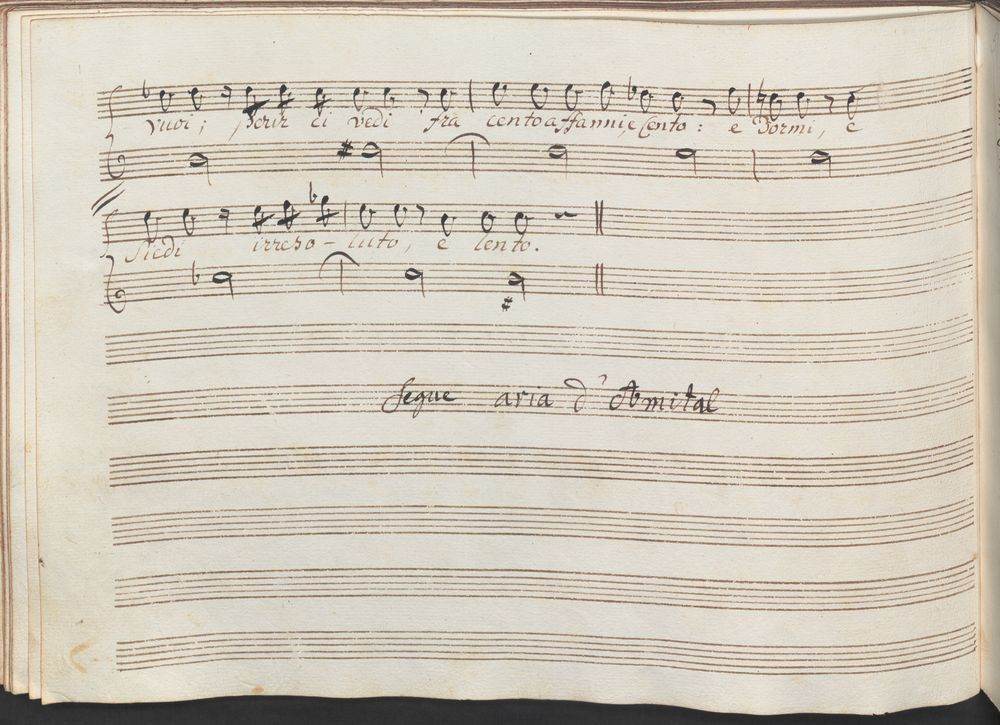 vuoi; Perir ci vedi fra cento affanni, e Cento: e Dormi, e
Siedi irreso-luto, e lento.
Segue aria d' Amital